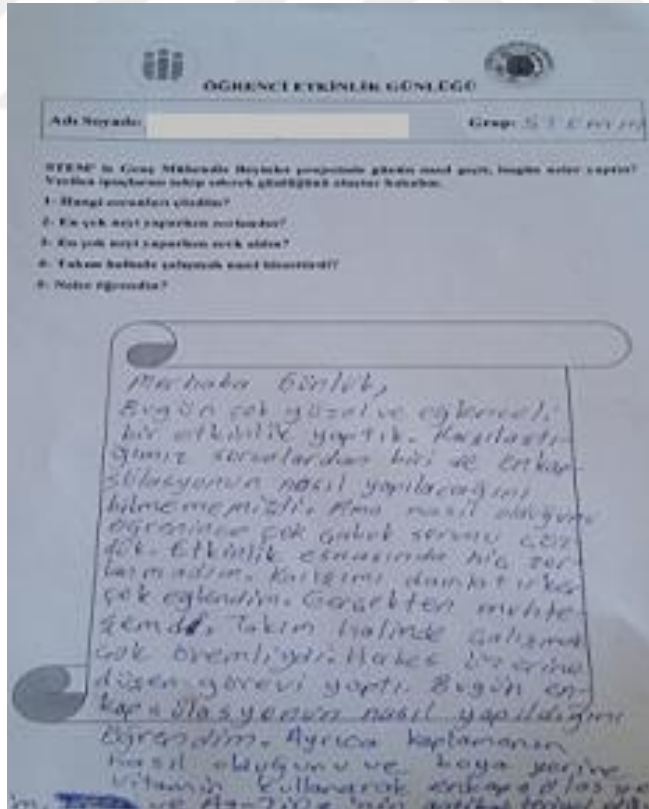 ÖĞRENCİ ETKİNLİK GÜNLÜĞÜ
Adı Soyadı:
Grup: STEM
STEM' le Genç Mühendis Beyinler projesinde günün nasıl geçti, bugün neler yaptın?
Verilen ipuçlarını takip ederek günlüğünü oluştur bakalım.
1- Hangi sorunları çözdün?
2- En çok neyi yaparken zorlandın?
3- En çok neyi yaparken zevk aldın?
4- Takım halinde çalışmak nasıl hissettirdi?
5- Neler öğrendin?
Merhaba Günlük,
Bugün çok güzel ve eğlenceli
bir etkinlik yaptık. Karşılaştı-
ğımız sorunlardan biri de enkap-
sülasyonun nasıl yapılacağını
bilmememizdi. Ama nasıl olduğunu
öğrenince çok çabuk sorunu çöz-
dük. Etkinlik esnasında hiç zor-
lanmadım. Karışımı damlatırken
çok eğlendim. Gerçekten muhte-
şemdi. Takım halinde çalışmak
çok önemliydi. Herkes üzerine
düşen görevi yaptı. Bugün en-
kapsülasyonun nasıl yapıldığını
öğrendim. Ayrıca kaplamanın
nasıl olduğunu ve boya yerine
vitamin kullanarak
ve